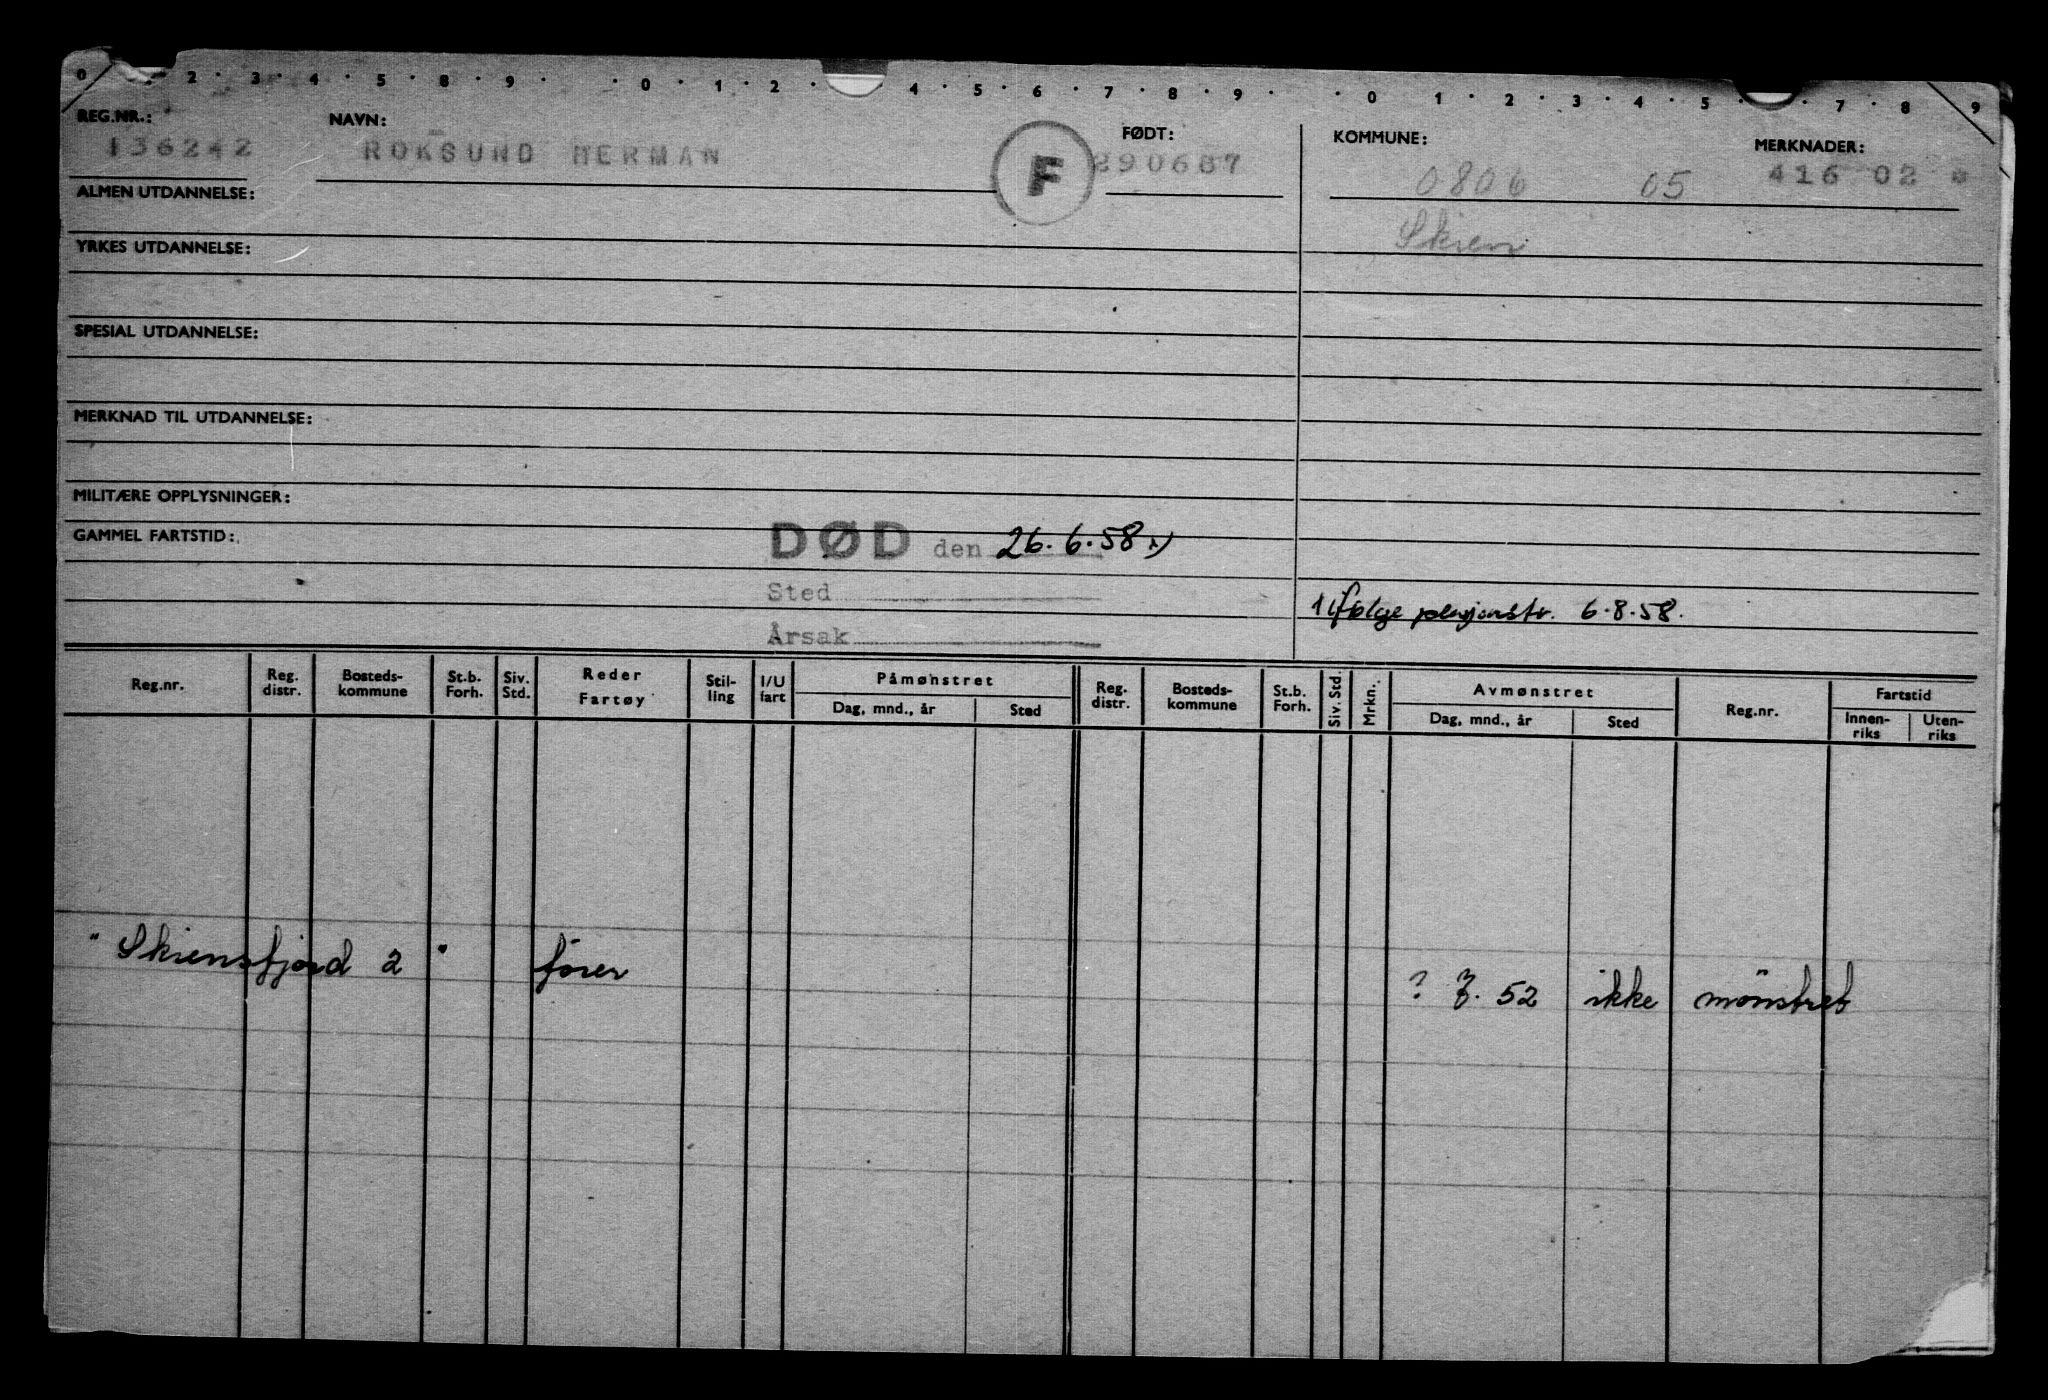 0 2 · 3 · 4 · 5 · 8 · 9 · · 0 · 1 · 2 · 4 · 5 · 6 · 7 · 8 · 9 · · 0 1 · 2 · 3 · 4 · 5 · · 7 · 8 9
REG.NR.: NAVN: FØDT: KOMMUNE: MERKNADER:
136242 ROKSUND HERMAN F 290687 0806 05 416 02
ALMEN UTDANNELSE:
Skien
YRKES UTDANNELSE:
SPESIAL UTDANNELSE:
MERKNAD TIL UTDANNELSE:
MILITÆRE OPPLYSNINGER:
GAMMEL FARTSTID:
DØD den 26.6.58 1)
Sted
1) ifølge pensjonstr. 6.8.58.
Årsak
Reg.nr. Reg. distr. Bosteds-kommune St.b. Forh. Siv. Std. Reder Fartøy Stil-ling I/U fart Påmønstret Dag, mnd., år Sted Reg. distr. Bosteds-kommune St.b. Forh. Siv. Std. Mrkn. Avmønstret Dag, mnd., år Sted Reg.nr. Fartstid Innen-riks Uten-riks
" Skiensfjord 2 " fører
? 7. 52 ikke mönstret